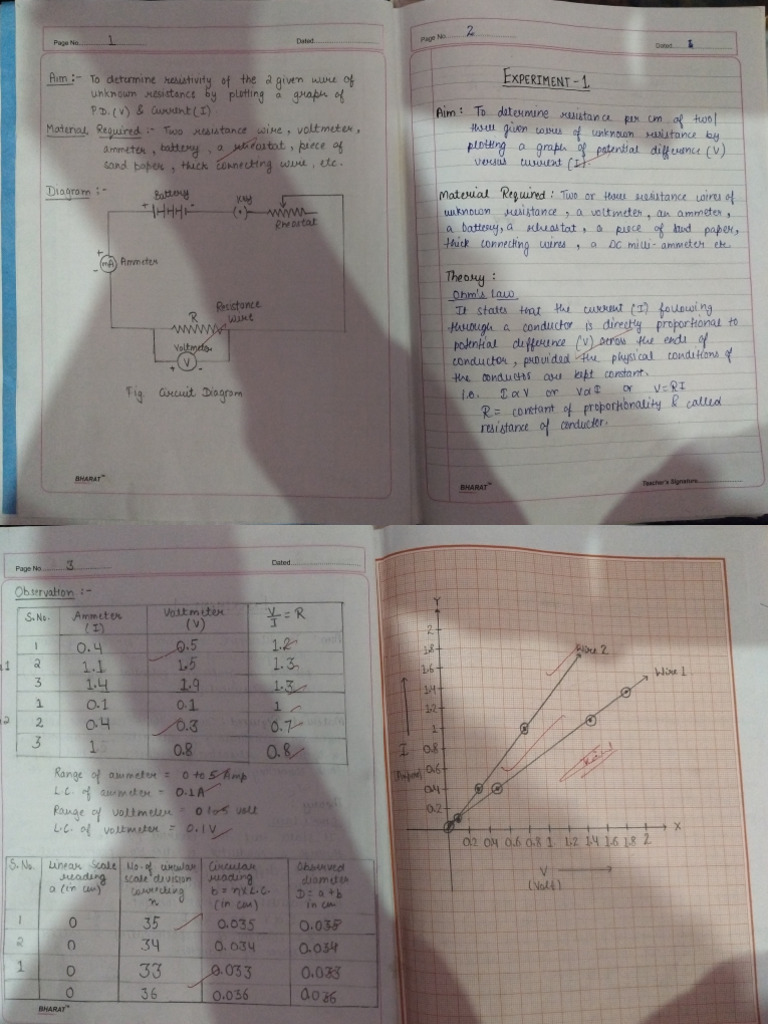 Page No. 1 Dated
Aim :- To determine resistivity of the 2 given wire of
unknown resistance by plotting a graph of
P.D. (V) & current (I).
Material Required :- Two resistance wire, voltmeter,
ammeter, battery, a rheostat, piece of
sand paper, thick connecting wire, etc.
Diagram :-
Battery
+ -
Key
(•)
Rheostat
+
mA Ammeter
-
R
Resistance
Wire
Voltmeter
+ V -
Fig Circuit Diagram
BHARAT™
Page No. 2
Dated 1
EXPERIMENT - 1
Aim : To determine resistance per cm of two/
three given wires of unknown resistance by
plotting a graph of potential difference (V)
versus current (I).
Material Required : Two or three resistance wires of
unknown resistance, a voltmeter, an ammeter,
a battery, a rheostat, a piece of sand paper,
thick connecting wires, a DC milli-ammeter etc
Theory :
Ohm's Law
It states that the current (I) following
through a conductor is directly proportional to
potential difference (V) across the ends of
conductor, provided the physical conditions of
the conductor are kept constant.
i.e. I α V or V α I or V = RI
R = constant of proportionality & called
resistance of conductor.
BHARAT™ Teacher's Signature
Page No. 3 Dated
Observation :-
S.No. Ammeter (I) Voltmeter (V) V/I = R
1 0.4 0.5 1.2
2 1.1 1.5 1.3
3 1.4 1.9 1.3
1 0.1 0.1 1
2 0.4 0.3 0.7
3 1 0.8 0.8
Range of ammeter = 0 to 5 Amp
L.C. of ammeter = 0.1A
Range of voltmeter = 0 to 5 volt
L.C. of voltmeter = 0.1V
S.No. Linear Scale reading a (in cm) No. of circular scale division n Circular reading b = n x L.C. (in cm) Observed diameter D = a + b in cm
1 0 35 0.035 0.035
2 0 34 0.034 0.034
1 0 33 0.033 0.033
0 36 0.036 0.036
BHARAT™
Y
2
1.8
1.6
1.4
1.2
1
0.8
0.6
0.4
0.2
Wire 2
Wire 1
I
X
0.2 0.4 0.6 0.8 1 1.2 1.4 1.6 1.8 2
V
(Volt)